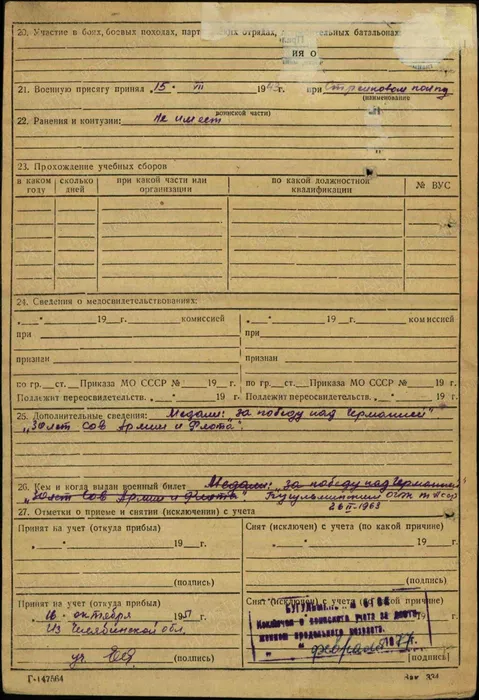 20. Участие в боях, боевых походах, парт отрядах, ительных батальонах
ИЯ О
21. Военную присягу принял „15“ VII 1943г. при Стрелковом полку
(наименование
воинской части)
22. Ранения и контузии: Не имеет
23. Прохождение учебных сборов
в каком году | сколько дней | при какой части или организации | по какой должностной квалификации | № ВУС
24. Сведения о медосвидетельствованиях:
„ “ 19 г. комиссией | „ “ 19 г. комиссией
при | при
признан | признан
по гр. ст. Приказа МО СССР № 19 г. | по гр. ст. Приказа МО СССР № 19 г.
Подлежит переосвидетельств. 19 г. | Подлежит переосвидетельств. 19 г.
25. Дополнительные сведения: Медали: „За победу над Германией“
„30 лет Сов Армии и Флота“.
26. Кем и когда выдан военный билет Медали: „За победу над Германией“
„30 лет Сов Армии и Флота“ Бугульминским
27. Отметки о приеме и снятии (исключении) с учета 26 II-1963
Принят на учет (откуда прибыл) | Снят (исключен) с учета (по какой причине)
„ “ 19 г. | „ “ 19 г.
(подпись) | (подпись)
Принят на учет (откуда прибыл) | Снят (исключен) с учета (по какой причине)
16 октября 1951 г.
Из Челябинской обл.
БУГУЛЬМИН
Исключен с воинского учета за дости-
жением предельного возраста.
„ “ февраля 1977г.
(подпись) | (подпись)
Г-147564
Зак. 334